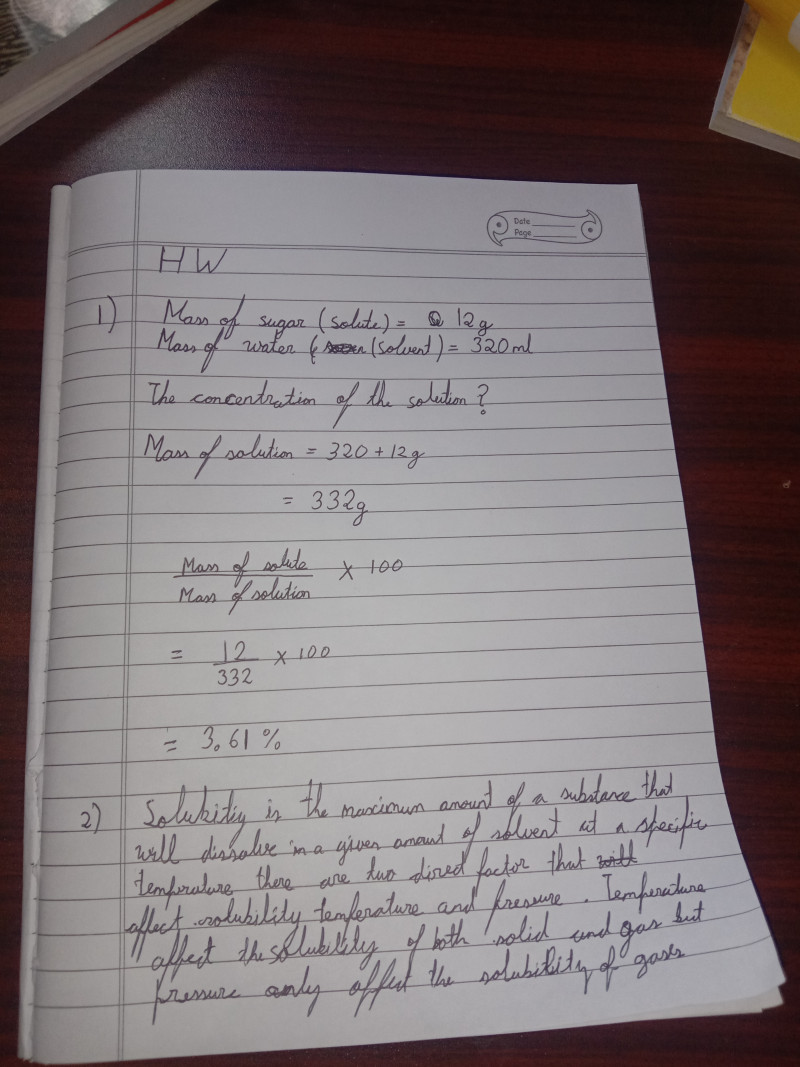 Date
Page
HW
1) Mass of sugar (solute) = 12g
Mass of water (solvent) = 320ml
The concentration of the solution?
Mass of solution = 320 + 12g
= 332g
Mass of solute
Mass of solution
X 100
= 12
332
X 100
= 3.61%
2) Solubitiy is the maximum amount of a substance that
will dissolve in a given amount of solvent at a specific
temperature there are two direct factor that will
affect solubility temperature and pressure. Temperature
affect the solubility of both solid and gas but
pressure only affect the solubility of gases